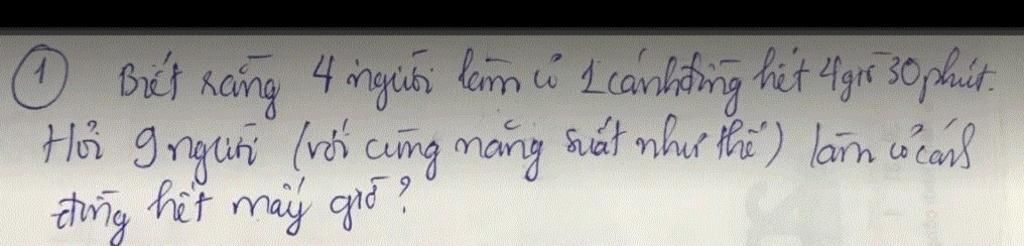 ① Biết rằng 4 người làm cỏ 1 cánh đồng hết 4 giờ 30 phút.
Hỏi 9 người (với cùng năng suất như thế) làm cỏ cánh
đồng hết mấy giờ?